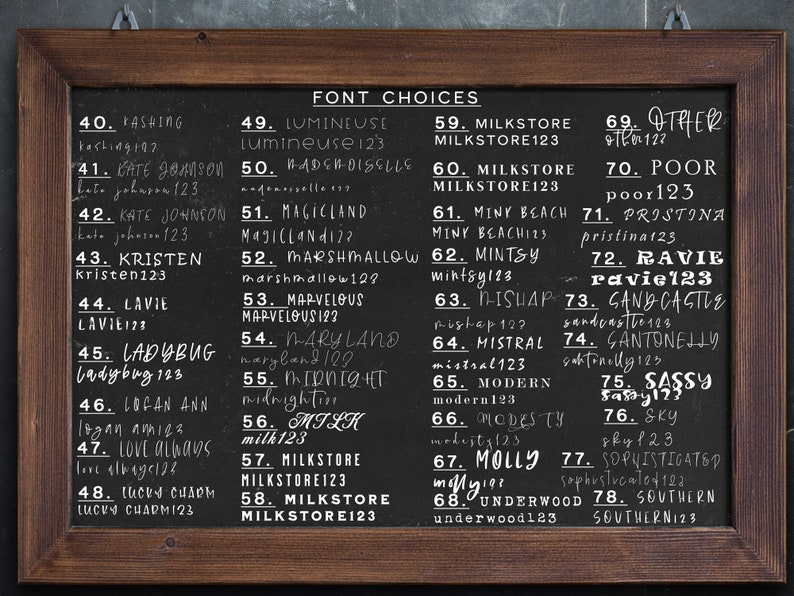 FONT CHOICES
40. KASHING
kashing123
41. KATE JOHNSON
kate johnson123
42. KATE JOHNSON
kate johnson123
43. KRISTEN
kristen123
44. LAVIE
LAVIE123
45. LADYBUG
ladybug123
46. LOGAN ANN
logan ann123
47. LOVE ALWAYS
love always123
48. LUCKY CHARM
LUCKY CHARM123
49. LUMINEUSE
lumineuse123
50. MADEMOISELLE
mademoiselle123
51. MAGICLAND
MAGICLANd123
52. MARSHMALLOW
marshmallow123
53. MARVELOUS
MARVELOUS123
54. MARYLAND
maryland123
55. MIDNIGHT
midnight123
56. MILK
milk123
57. MILKSTORE
MILKSTORE123
58. MILKSTORE
MILKSTORE123
59. MILKSTORE
MILKSTORE123
60. MILKSTORE
MILKSTORE123
61. MINK BEACH
MINK BEACH123
62. MINTSY
mintsy123
63. MISHAP
mishap123
64. MISTRAL
mistral123
65. MODERN
modern123
66. MODESTY
modesty123
67. MOLLY
molly123
68. UNDERWOOD
underwood123
69. OTHER
other123
70. POOR
poor123
71. PRISTINA
pristina123
72. RAVIE
ravie123
73. SANDCASTLE
sandcastle123
74. SANTONELLY
santonelly123
75. SASSY
sassy123
76. SKY
sky123
77. SOPHISTICATED
sophisticated123
78. SOUTHERN
SOUTHERN123